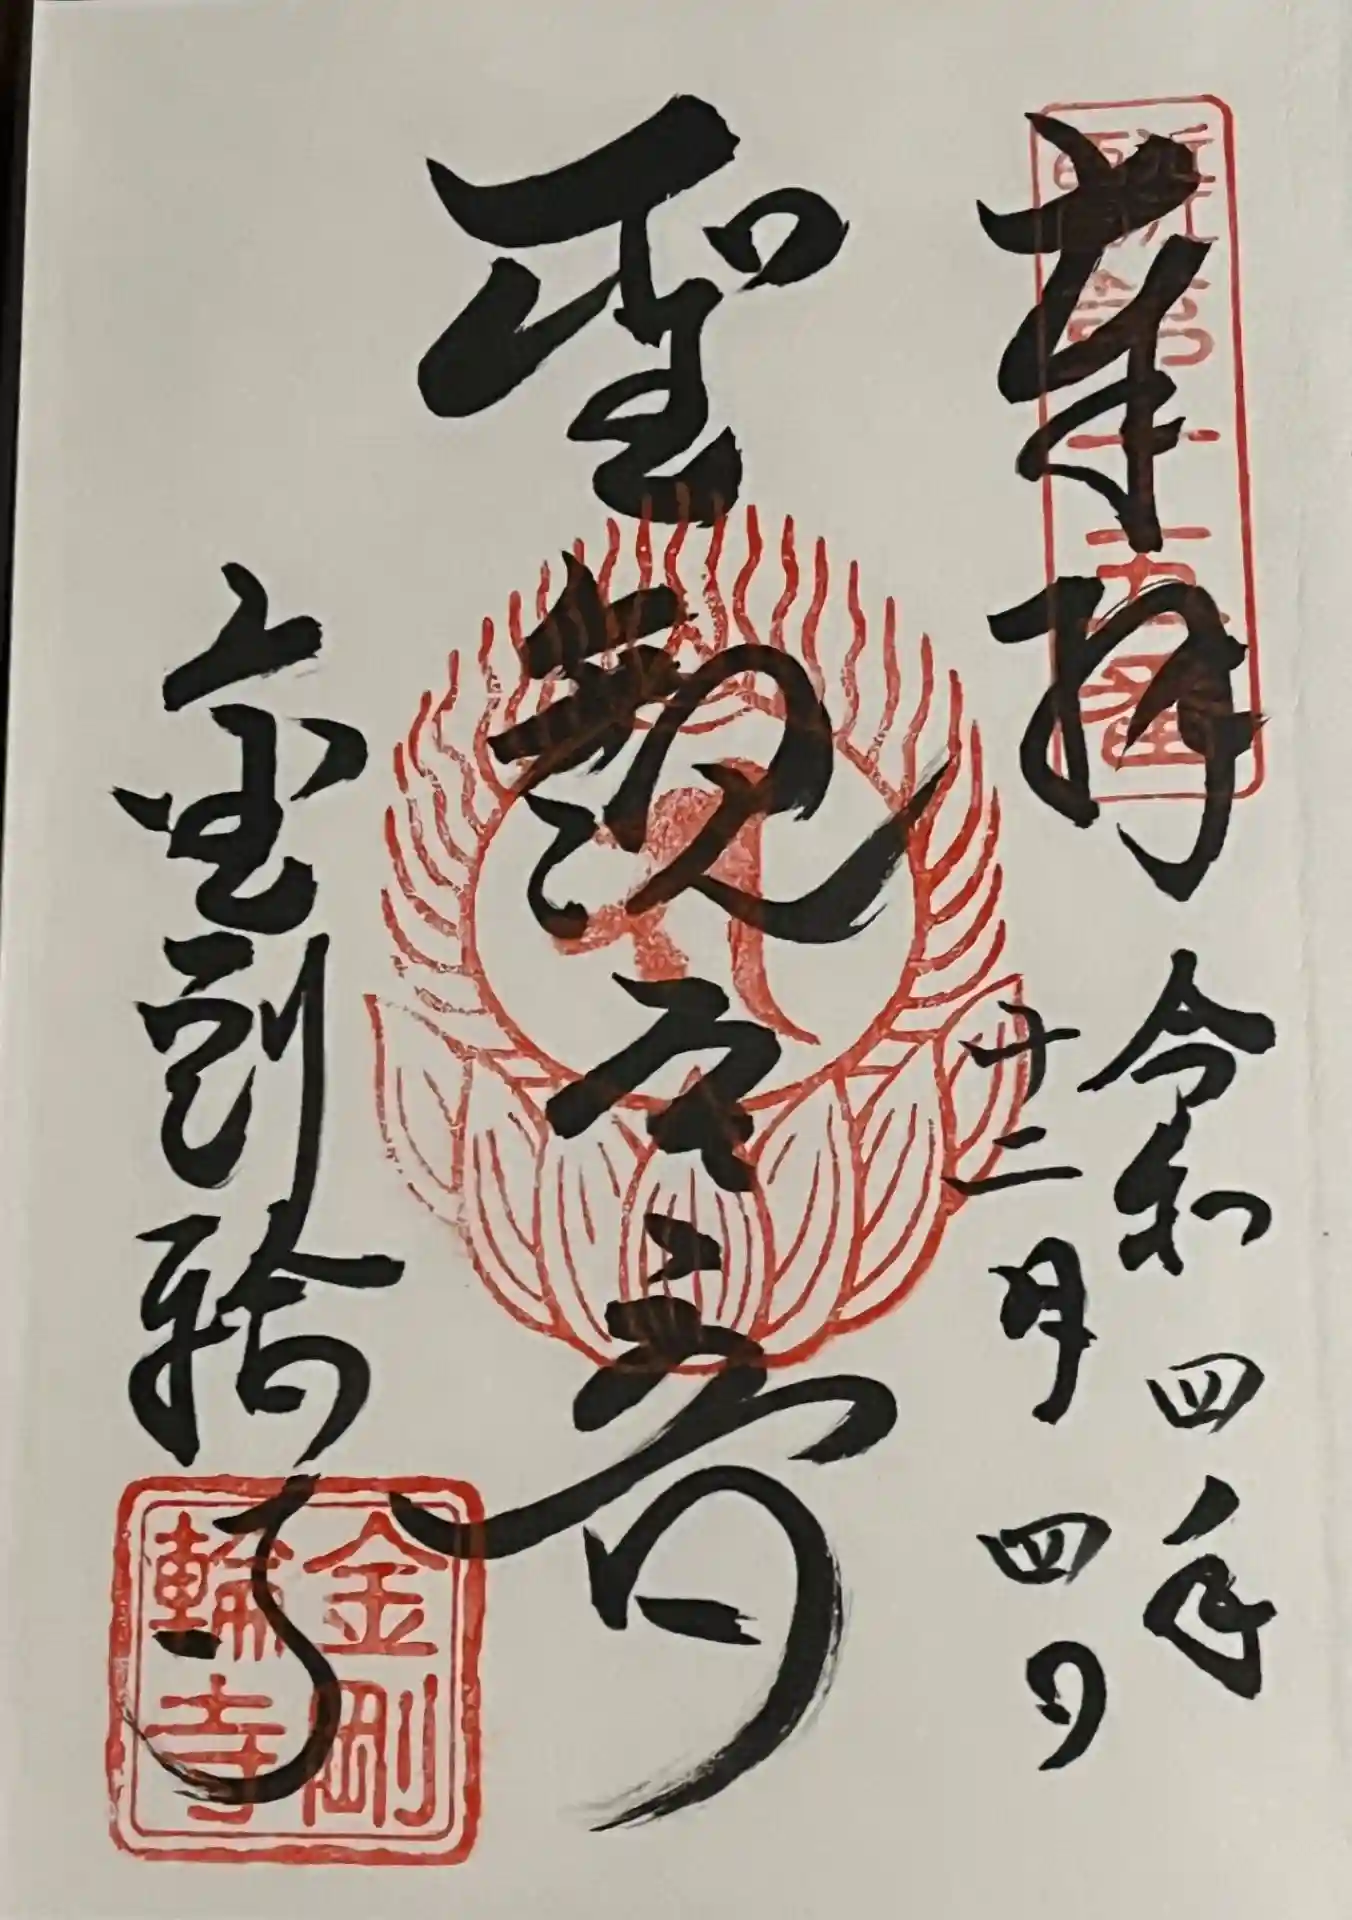 奉拝
令和四年
十二月四日
聖観世音
金剛輪寺
近江
西国
第十五番
金剛
輪寺